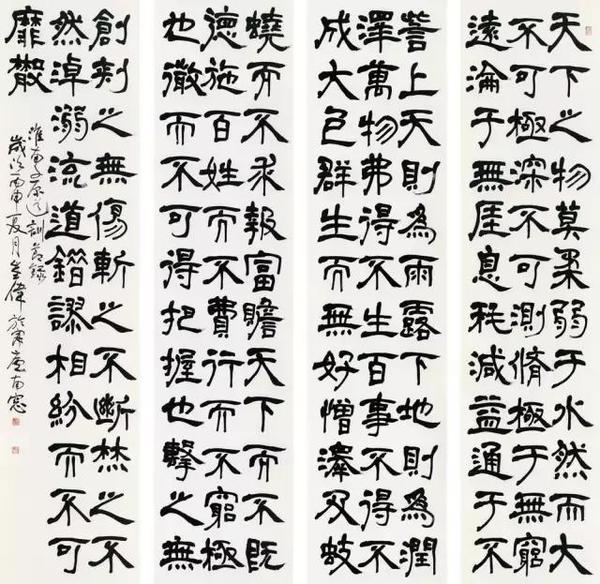 天下之物莫柔弱于水然而大
不可極深不可測脩極于無窮
遠淪于無厓息耗減益通于不
訾上天則為雨露下地則為潤
澤萬物弗得不生百事不得不
成大包群生而無好憎澤及蚑
蟯而不求報富贍天下而不既
德施百姓而不費行而不窮極
也微而不可得把握也擊之無
創刺之無傷斬之不斷焚之不
然淖溺流道錯謬相紛而不可
靡散
淮南子原道訓節錄
歲次丙申夏月偉於廬南窓